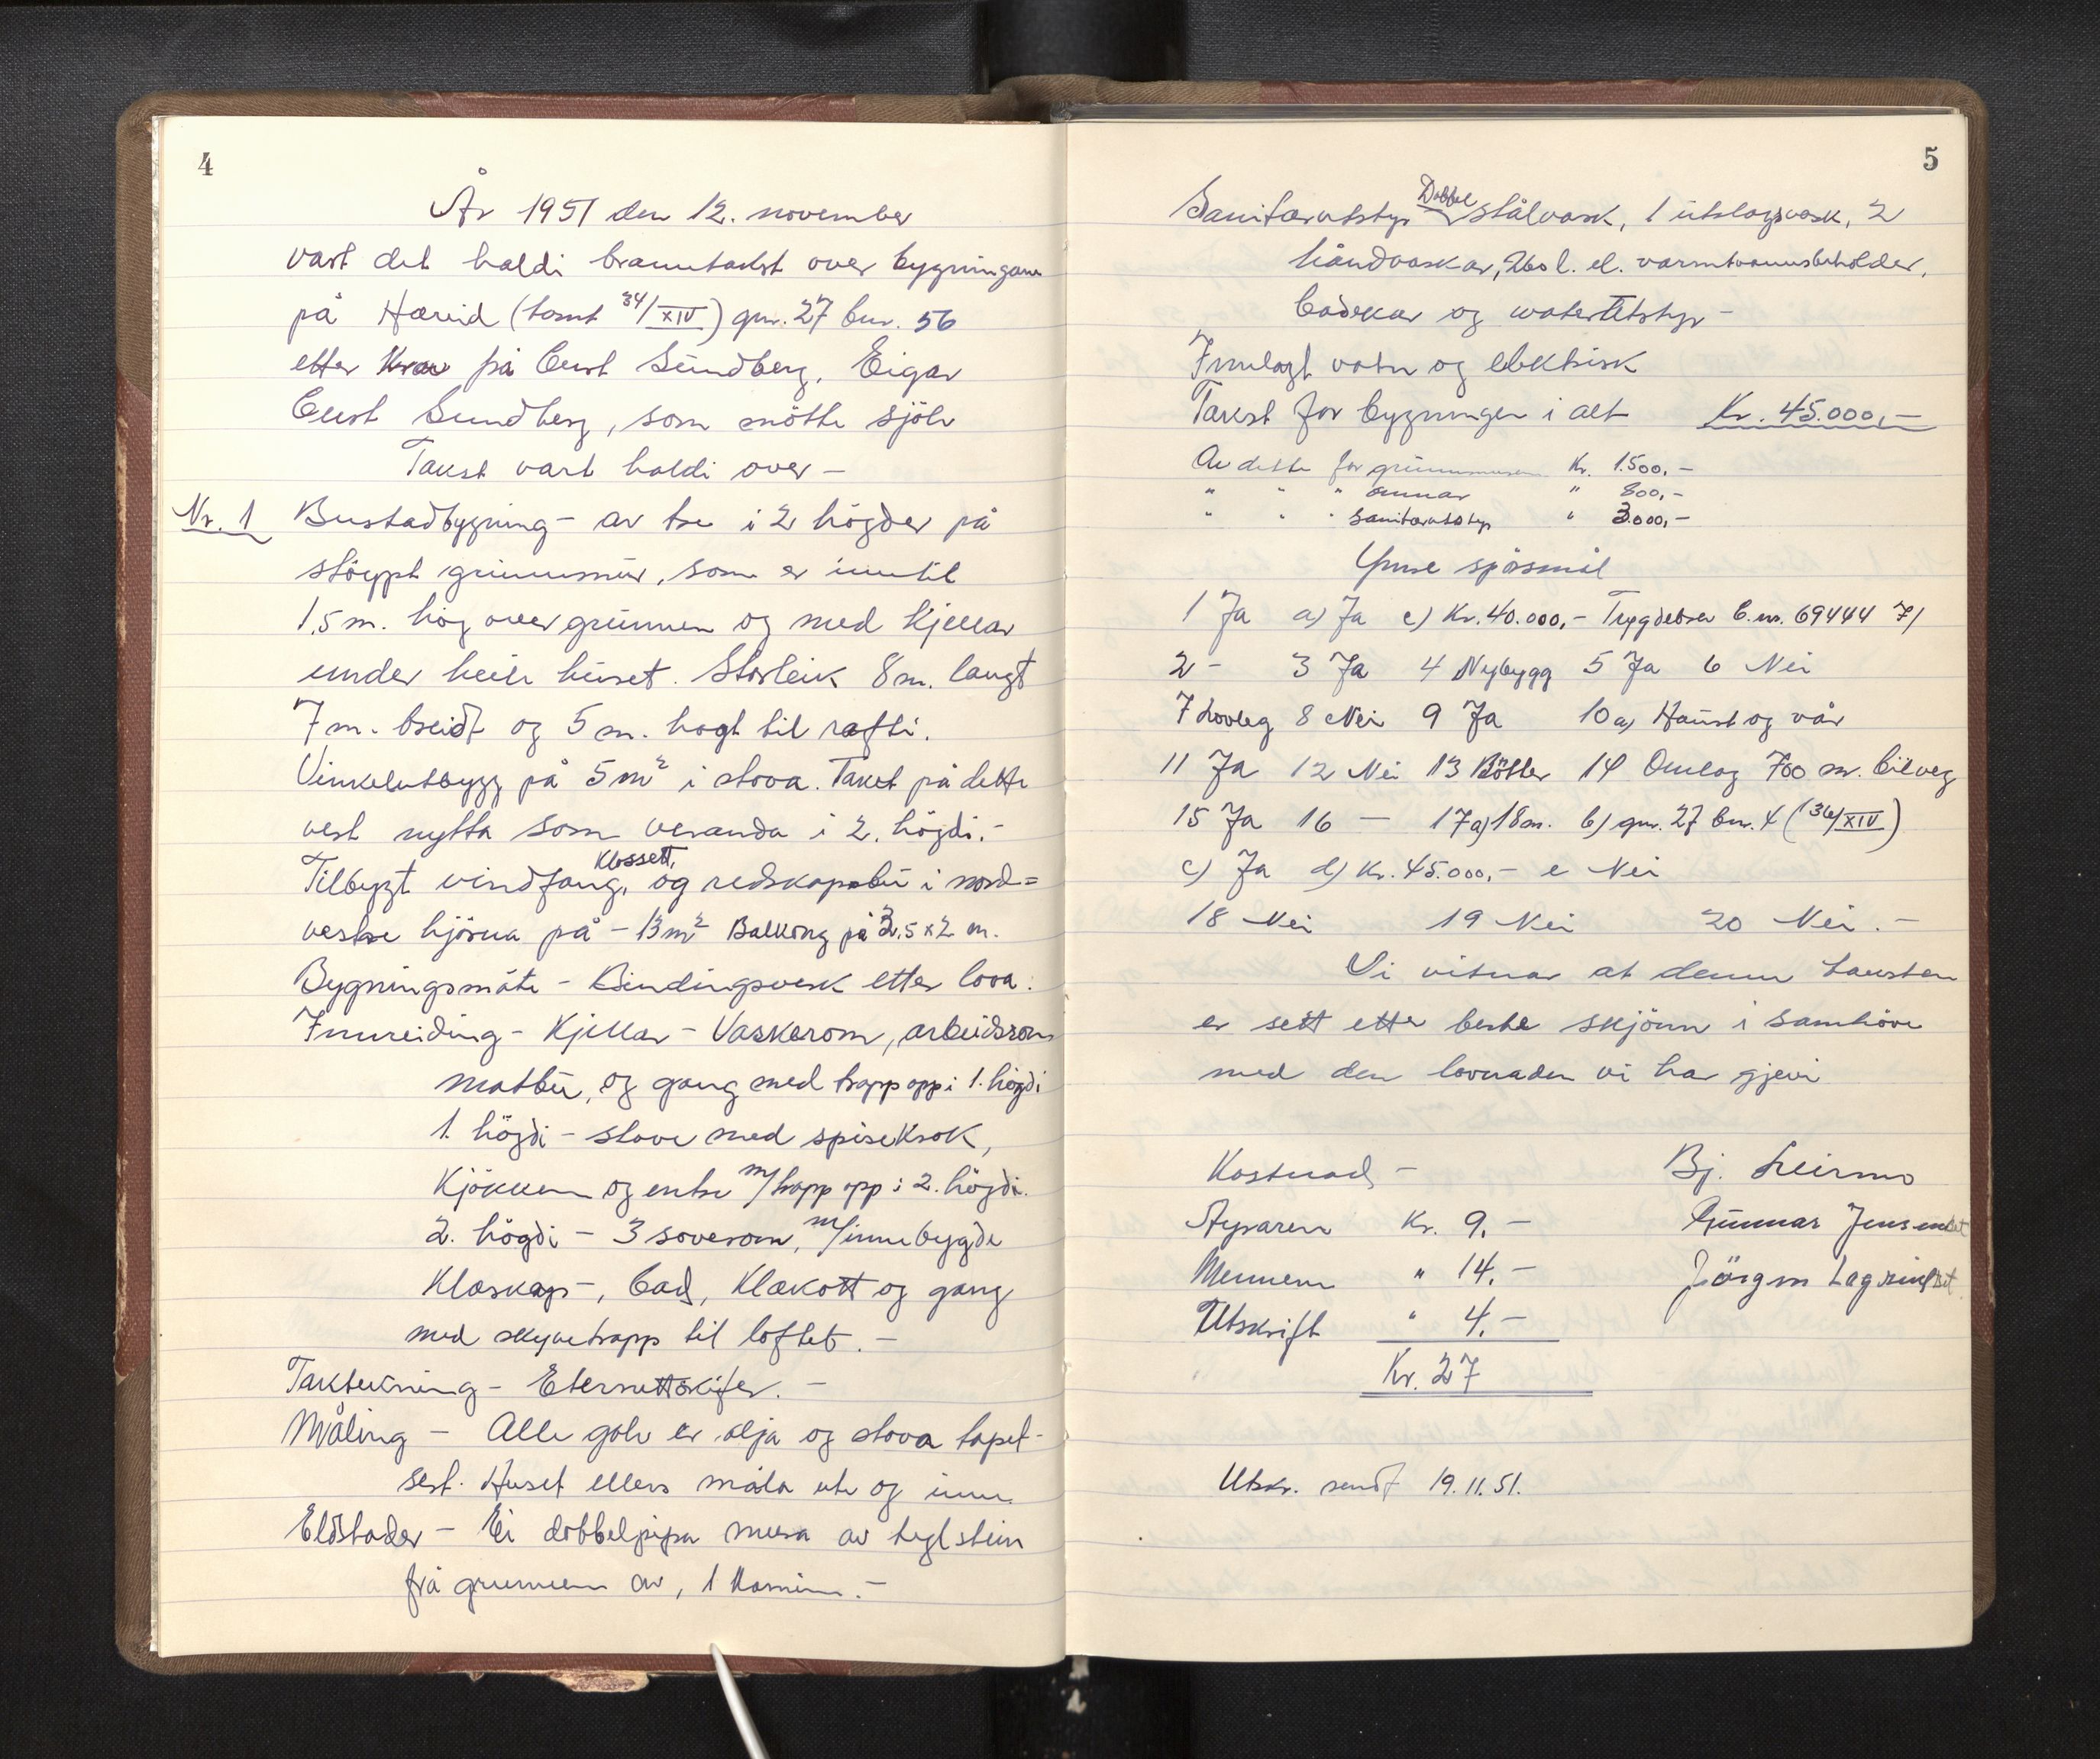 4
År 1951 den 12. november
vart det haldi branntakst over bygningane
på Hæreid (tomt 34/XIV) gnr. 27 bnr. 56
etter krav på Curt Sundberg. Eigar
Curt Sundberg, som mötte sjölv
Takst vart haldi over -
Nr. 1 Bustadbygning - av tre i 2 högder på
stöypt grunnmur, som er inntil
1,5 m. hög over grunnen og med kjellar
under heile huset. Storleik 8 m. langt
7 m. breidt og 5 m. høgt til rafti.
Vinkelutbygg på 5 m² i stova. Taket på dette
vert nytta som veranda i 2. högdi.-
Tilbygt vindfang, Klossett, og redskapsbu i nord=
vestre hjörna på - 13 m² Balkong på 2,5 x 2 m.
Bygningsmåte - Bindingsverk etter lova.
Innreiding - Kjellar - Vaskerom, arbeidsrom
matbu, og gang med trapp opp i 1. högdi
1. högdi - stove med spisekrok,
Kjökken og entre m/trapp opp i 2. högdi.
2. högdi - 3 soverom, m/innebygde
Klæskap -, bad, Klækott og gang
med skyvetrapp til loftet. -
Taktekning - Eternittskifer. -
Måling - Alle golv er olja og stova tapet-
sert. Huset ellers måla ute og inne
Eldstader - Ei dobbelpipa mura av teglstein
frå grunnen av, 1 Kamin. -
5
Sanitærutstyr Dobbel stålvask, 1 utslagsvask, 2
håndvaskar, 260 l. el. varmtvannsbeholder,
badekar og waterutstyr -
Innlagt vatn og elektrisk
Takst for bygningen i alt Kr. 45.000,-
Av dette for grunnmuren Kr. 1.500,-
" " " omnar " 800,-
" " " sanitærutstyr " 3.000,-
Ymse spörsmål
1 Ja a) Ja c) Kr. 40.000,- Trygdebrev b.nr. 69444 71
2 - 3 Ja 4 Nybygg 5 Ja 6 Nei
7 Lovleg 8 Nei 9 Ja 10 a) Haust og vår
11 Ja 12 Nei 13 Bötter 14 Omlag 700 m. bilveg
15 Ja 16 — 17 a) 18 m. b) gnr. 27 bnr. 4 (136/XIV)
c) Ja d) Kr. 45.000,- e Nei
18 Nei 19 Nei 20 Nei. -
Vi vitnar at denne taksten
er sett etter beste skjönn i samhöve
med den lovnaden vi har gjevi
Kostnad - Bj. Leirmo
Styraren Kr. 9.- Gunnar Jensen
Mennene " 14.- Jörgen
Utskrift " 4.-
Kr. 27
Utskr. sendt 19.11.51.